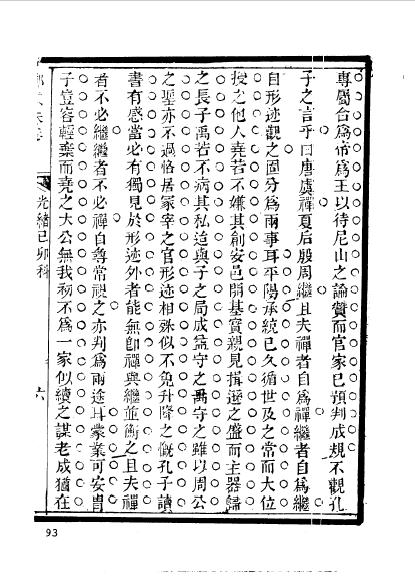 專屬台爲帝爲王以待尼山之論贊而官家已預判成規不觀孔
子之言乎曰唐虞禪夏后殷周繼且夫禪者自爲禪繼者自爲繼
自形迹觀之固分爲兩事耳平陽承統已久循世及之常而大位
授之他人堯若不嫌其創安邑開基實親見揖遜之盛而主器歸
之長子禹若不病其私迨與子之局成益守之守之雖以周公
之聖亦不過恪居冢宰之官形迹相殊似不免升降之慨孔子讀
書有感當必有獨見於形迹外者能無卽禪與繼並衡之且夫禪
者不必繼繼者不必禪自尋常視之亦判爲兩途耳蒙業可安胄
子豈容輕棄而堯之大公無我初不爲一家似續之謀老成猶在
光緒己卯科
六
93